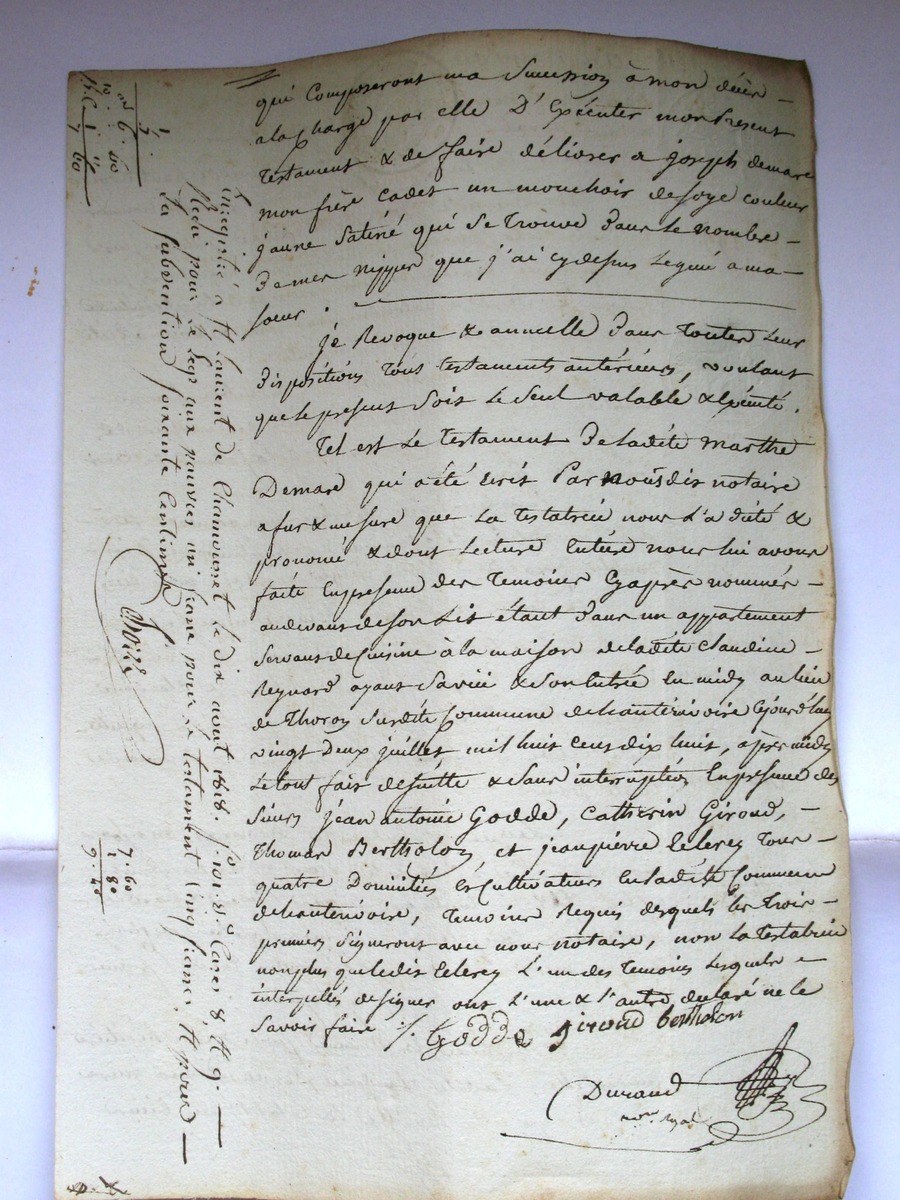 qui Composeront ma Succession à mon décès –
a la Charge par elle D'Exécuter mon Present
testament & de faire délivrer a joseph demare
mon frère cadet un mouchoir de soye couleur
jaune Satiné qui se trouve dans le nombre –
de mes nippes que j'ai cy dessus légué a ma –
soeur .
je Revoque & annulle dans toutes leur
dispositions tous testaments antérieurs, voulant
que le present Soit le Seul valable & Exécuté.
Tel est le testament de ladite marthe
Demare qui a été écrit Par nous dit notaire
a fur & mesure que la testatrice nous l'a dicté &
prononcé & dont lecture Entière nous lui avons
faite En presence des temoins Cy après nommés –
au devant de son lit étant dans un appartement
Servant de Cuisine à la maison de ladite Claudine –
Reynard ayant Sa vüe & son Entrée En midy au lieu
de Thoron Susdite Commune de hanterivoire Cejourd'huy
vingt deux juillet mil huit cent dix huit, après midy
Le tout fait de suitte & sans interruption En presence des
Sieurs jean antoine Godde, Catherin Giroud, –
Thomas Bertholon, et jean pierre Eclerey tous –
quatre Domiciliés & Cultivateurs En ladite Commune
de hanterivoire, temoins Requis desquels les trois –
premiers Signeront avec nous notaire, non la testatrice
non plus que ledit Eclerey l'un des temoins lesquels –
interpellés de signer ont l'une & l'autre declaré ne le
Savoir faire ./.
Godde giroud bertholon
Durand
nore royal
Enregistré à St Laurent de Chamousset le dix aout 1818. fo Cases 8, et 9. –
Reçu pour le legs aux pauvres un franc pour le testament Cinq francs, et pour –
la Subvention soixante Centimes
1
6 . 60
7 . 60
7 . 60
1 80
9 . 40